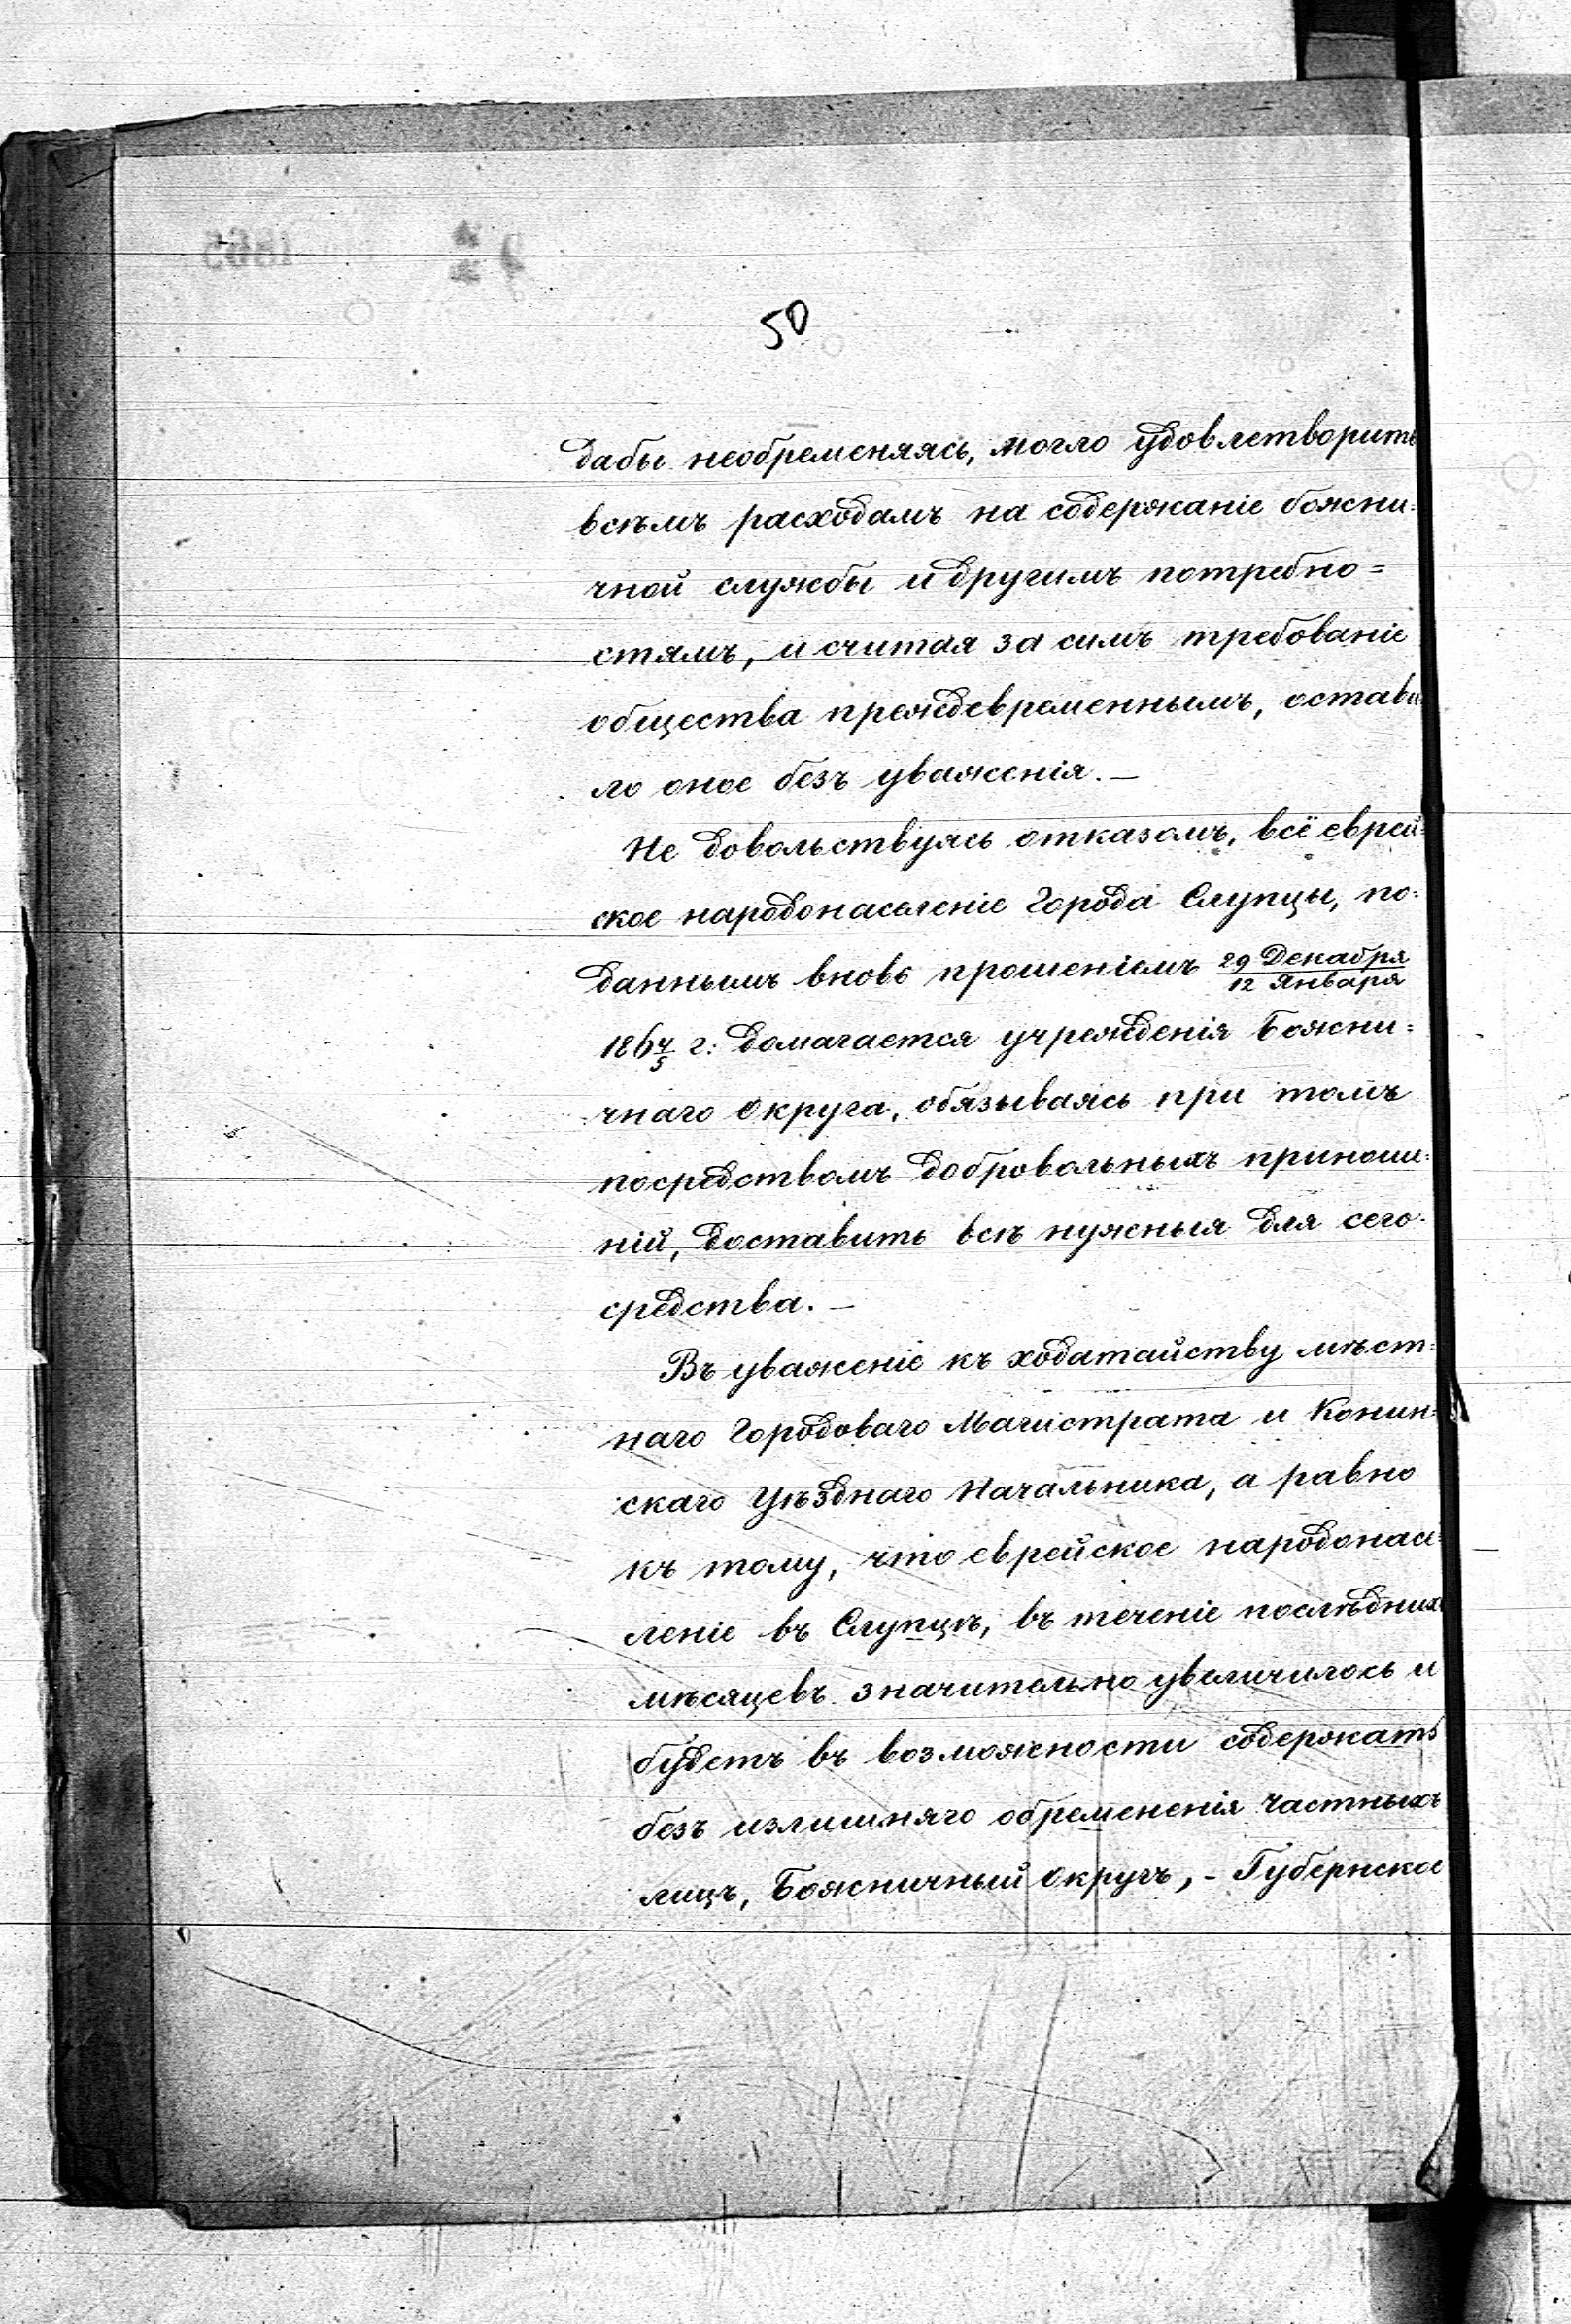 50
дабы необременяясь, могло удовлетворить
всѣмъ расходамъ на содержаніе божни-
чной службы и другимъ потребно=
стямъ, и считая за симъ требованіе
общества преждевременнымъ, остави
ло оное безъ уваженія. —
Не довольствуясь отказомъ, всё еврей-
ское народонаселеніе Города Слупцы, по-
даннымъ вновь прошеніемъ 29 Декабря / 12 Января
186 4/5 г: домагается учрежденія Божни=
чнаго Округа, обязываясь при томъ
посредствомъ добровольныхъ приноше-
ній, доставить всѣ нужныя для сего
средства. —
Въ уваженіе къ ходатайству мѣст-
наго Городоваго Магистрата и Конин-
скаго Уѣзднаго Начальника, а равно
къ тому, что еврейское народонасе-
леніе въ Слупцѣ, въ теченіе послѣднихъ
мѣсяцевъ значительно увеличилось и
будетъ въ возможности содержать
безъ излишняго обремененія частныхъ
лицъ, Божничный Округъ, - Губернское